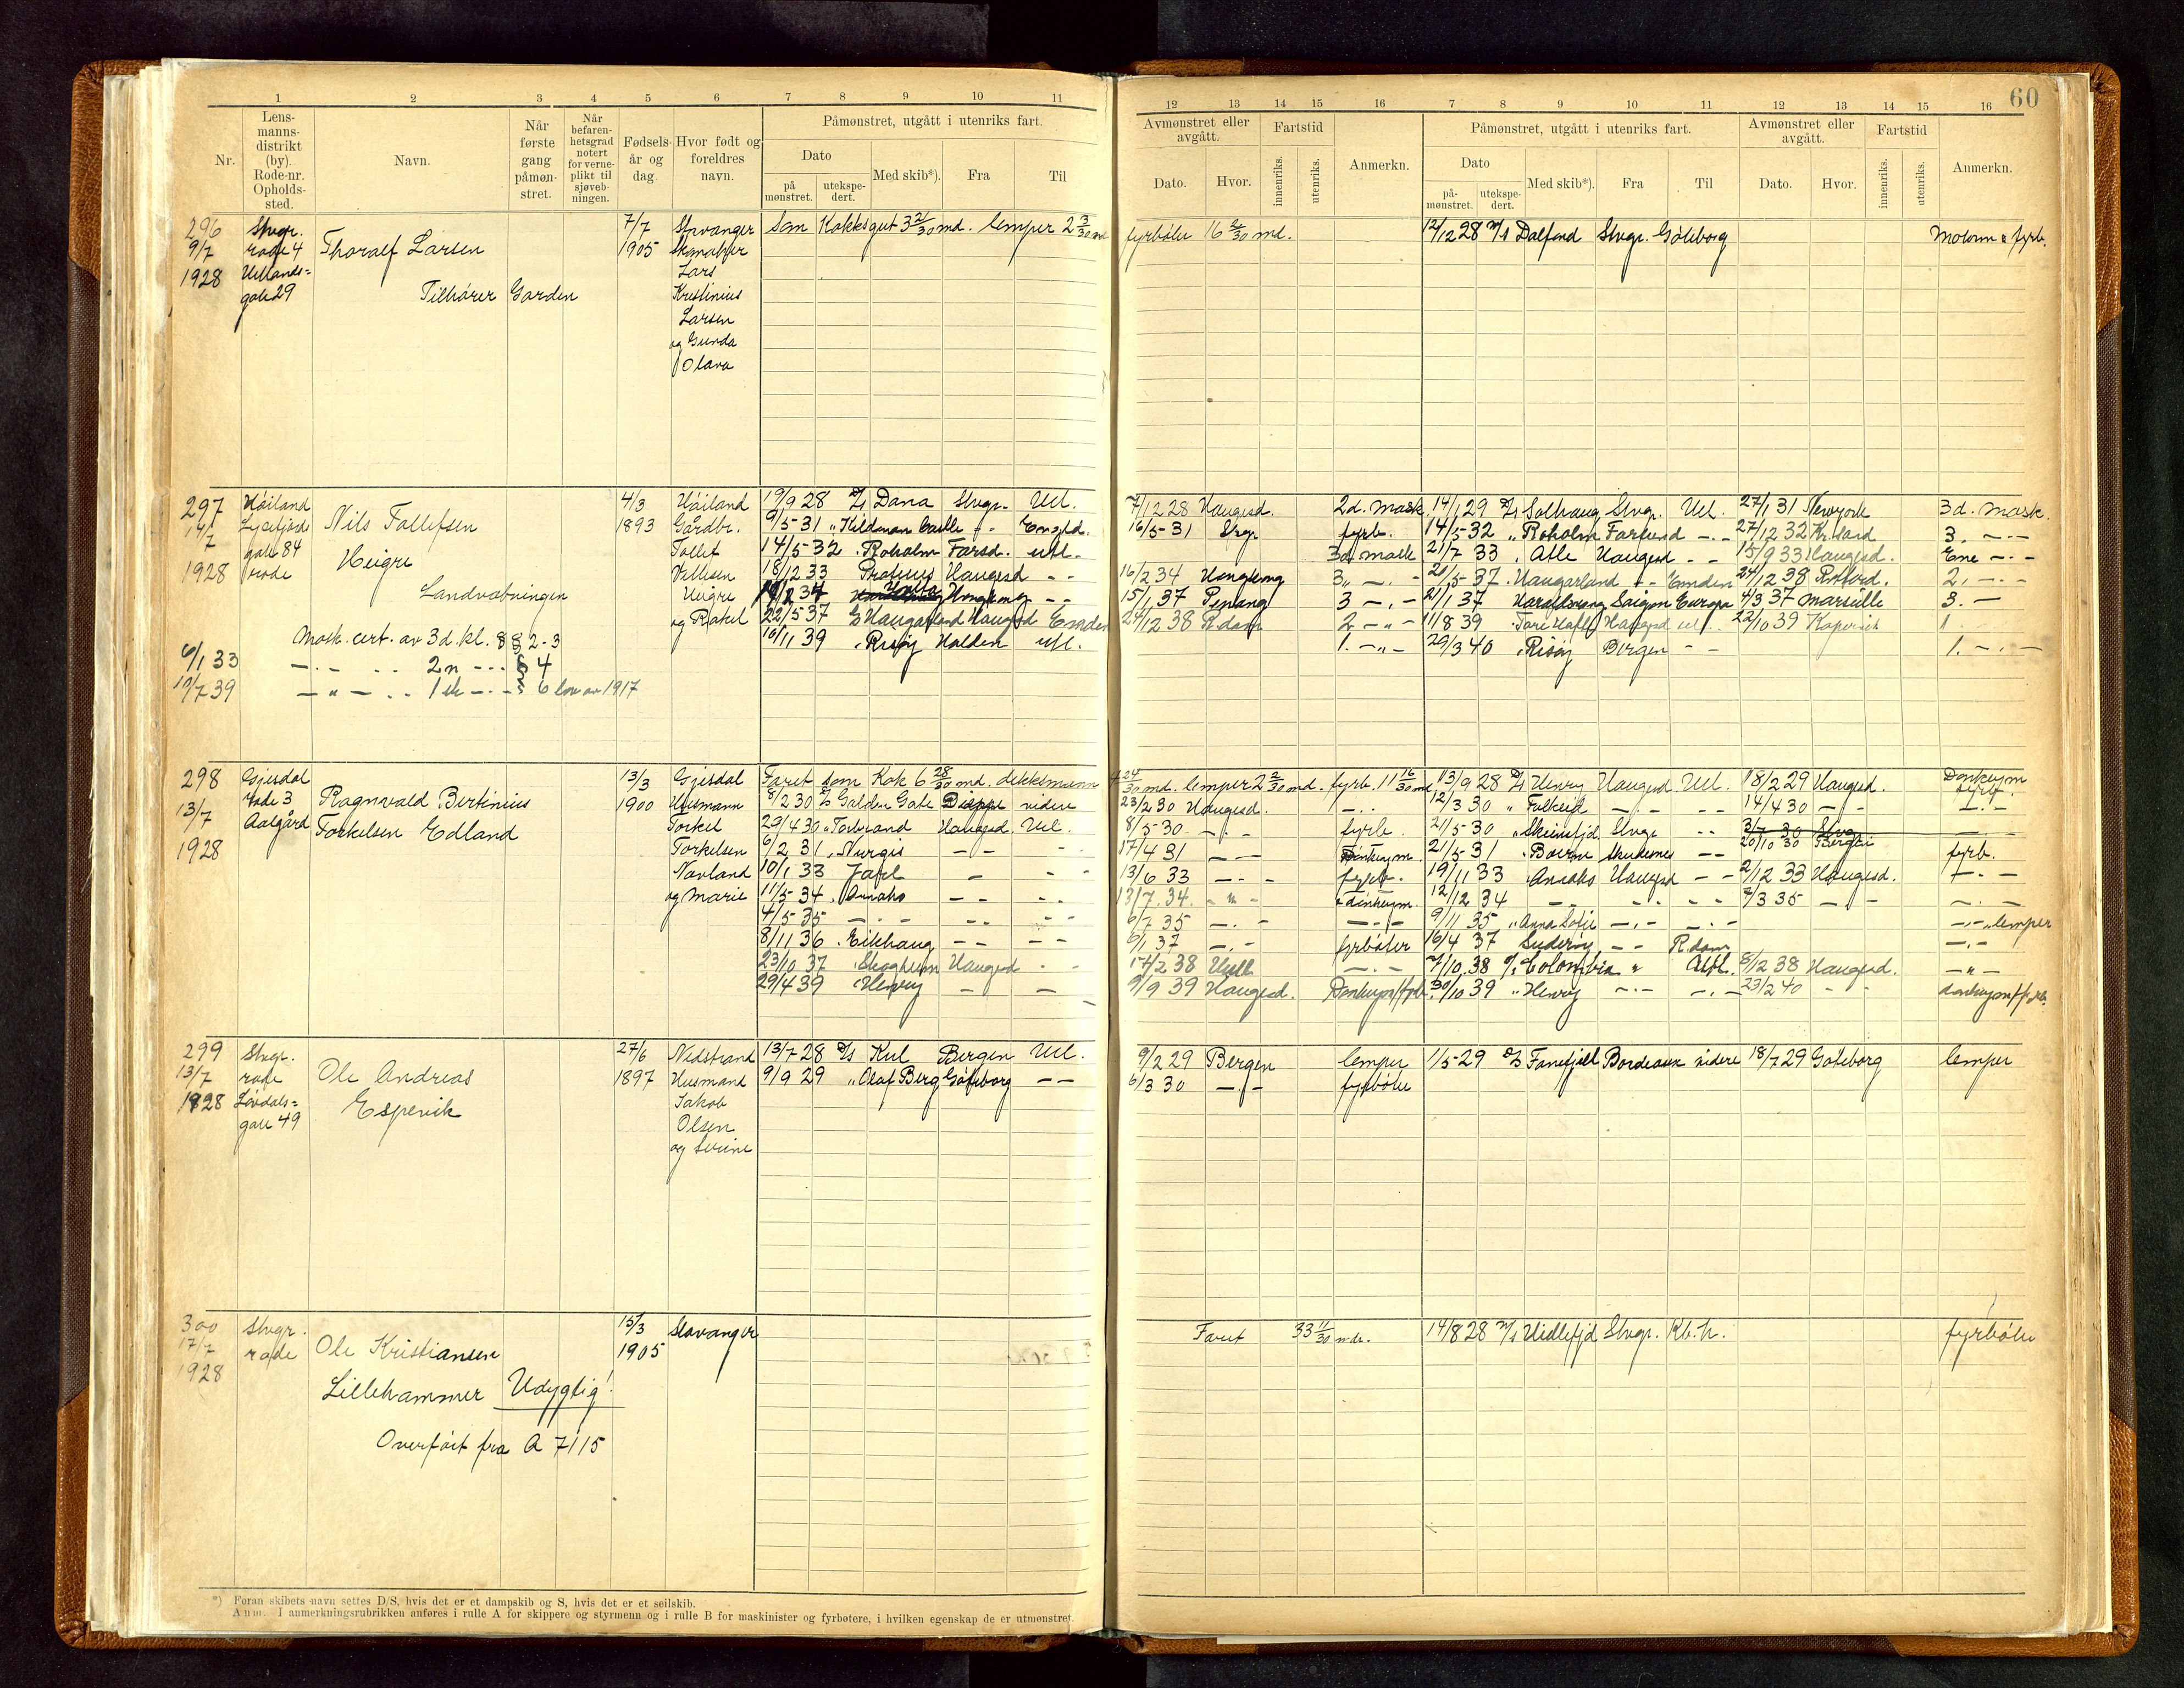 1 2 3 4 5 6 7 8 9 10 11
12 13 14 15 16 7 8 9 10 11 12 13 14 15 16
60
Nr.
Lens-
manns-
distrikt
(by).
Rode-nr.
Opholds-
sted.
Navn.
Når
første
gang
påmøn-
stret.
Når
befaren-
hetsgrad
notert
for verne-
plikt til
sjøveb-
ningen.
Fødsels-
år og
dag.
Hvor født og
foreldres
navn.
Påmønstret, utgått i utenriks fart.
Dato
på
mønstret.
utekspe-
dert.
Med skib*).
Fra
Til
Avmønstret eller
avgått.
Dato.
Hvor.
Fartstid
innenriks.
utenriks.
Anmerkn.
Påmønstret, utgått i utenriks fart.
Dato
på-
mønstret.
utekspe-
dert.
Med skib*).
Fra
Til
Avmønstret eller
avgått.
Dato.
Hvor.
Fartstid
innenriks.
utenriks.
Anmerkn.
296
9/7
1928
Stvgr.
rode 4
gate 29
Thoralf Larsen
Tilhører Garden
7/7
1905
Stavanger
Lars
Kristinius
Larsen
og Gunda
Olava
som Kokksgut 3 21/30 md. lemper 2 3/30 md
fyrbøter 16 2/30 md.
12/12 28 M/S Dalfond Stvgr. Gøteborg
297
14/7
1928
Høiland
gate 84
rode
Nils Tollefsen
Heigre
Landvæbningen
4/3
1893
Høiland
Gårdbr.
Tollef
Heigre
og Rakel
19/9 28 D/S Dana Stvgr. Utl.
9/5-31 " Kildonan Castle - - Engld.
14/5-32 " Roholm Farsd. utl.
18/12 33 Haugesd - -
22/5-37 Haugarland Haugesd Emden
16/11 39 " Risøy Halden utl.
7/12 28 Haugesd. 2d. mask.
16/5-31 Stvgr. fyrb.
3d mask
16/2 34 Hongkong 3 " - . -
15/1 37 Penang 3 - . -
24/12 38 R.dam 2 - " -
1. - " -
14/1 29 D/S Solhaug Stvgr. Utl. 27/1 31 Newyork 3d. mask.
14/5-32 " Roholm Farsund - . - 27/12 32 Kr.sand 3. - . -
21/7 33 " Atle Haugesd - - 15/9 33 Haugesd. Ene - . -
21/5-37 " Haugarland - - Emden 24/12 38 2. - . -
21/1 37 Haraldsvang Saigon Europa 4/3 37 Marseille 3. -
11/8 39 22/10 39 1
29/3 40 " Risøy Bergen - - 1. - . -
Mask. cert. av 3d. kl. § § 2-3
6/1 33 - . - . . 2n - . . § 4
19/7 39 - " - . . 1ste - . - § 6 lov av 1917
298
13/7
1928
Gjesdal
rode 3
Aalgård
Ragnvald Bertinius
Torkelsen Edland
13/3
1900
Gjesdal
Husmann
Torkel
Torkelsen
Navland
og Marie
Faret som Kok 6 28/30 md. dekksmann
4 24/30 md. lemper 2 2/30 md. fyrb. 11 16/30 md
8/2 30 D/S Golden Gate Dieppe videre
29/4 30 " Torbrand Haugesd. Utl.
6/2 31 " Nurgis - -
10/1 33 Jarl - - -
11/5-34 " Ansako - - - -
4/5-35 - . - - - - -
8/11 36 " Eikhaug - - - -
23/10 37 " Skogheim Haugesd - -
29/4 39 " Henry - -
23/2 30 Haugesd. - . -
8/5-30 - . - fyrb.
17/4 31 - - - Donkeym.
13/6 33 - . - fyrb.
13/7.34. - " - donkeym.
6/7 35 - . - - . -
6/1 37 - . - fyrbøter
17/2 38 Hull - . -
9/9 39 Haugesd. Donkeym/fyrb.
13/9 28 D/S Henry Haugesd Utl. 18/2 29 Haugesd. Donkeym
fyrb.
12/3 30 " Falkeid - . - - - 14/4 30 - - - . -
21/5-30 " Stvgr - - 3/7 30 Stvgr - . -
20/10 30 Bergen
21/5-31 Skudesnes - - fyrb.
19/11 33 " Ansako Haugesd - - 2/12 33 Haugesd. - . -
12/12 34 - - - - - - 7/3 35 - - - . -
9/11 35 " Anna Sofie - . - - . - - . - " lemper
16/4 37 Suderøy - - R.dam - . -
7/10.38 D/S Colombia " 8/2 38 Haugesd. - " -
30/10 39 " Henry - . - - . - 23/2 40 - - donkeym/fyrb.
299
13/7
1928
Stvgr.
rode
Løvdals-
gate 49
Ole Andreas
Espevik
27/6
1897
Nedstrand
Husmand
Jakob
Olsen
og Serine
13/7 28 D/S Kul Bergen Utl.
9/9 29 " Olaf Berg Gøteborg - -
9/2 29 Bergen lemper
6/3 30 - . - fyrbøter
1/5-29 D/S Fanefjell Bordeaux videre 18/7 29 Gøteborg lemper
300
17/7
1928
Stvgr.
rode
Ole Kristiansen
Lillehammer Udygtig!
Overført fra A 7115
15/3
1905
Stavanger
Faret 33 11/30 mdr.
14/8 28 M/S Hidlefjd Stvgr. Kb.h. fyrbøter
*) Foran skibets navn settes D/S, hvis det er et dampskib og S, hvis det er et seilskib.
Anm. I anmerkningsrubrikken anføres i rulle A for skippere og styrmenn og i rulle B for maskinister og fyrbøtere, i hvilken egenskap de er utmønstret.